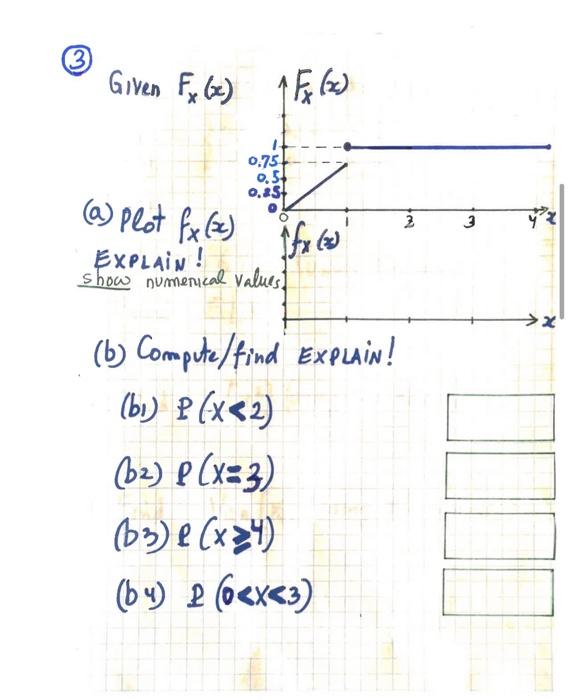 ③
Given Fₓ(x)
Fₓ(x)
1
0.75
0.5
0.25
0
0 1 2 3 4 x
(a) Plot fₓ(x)
fₓ(x)
EXPLAIN!
show numerical values
x
(b) Compute/find EXPLAIN!
(b1) P(X<2)
(b2) P(X=3)
(b3) P(X≥4)
(b4) P(0<X<3)